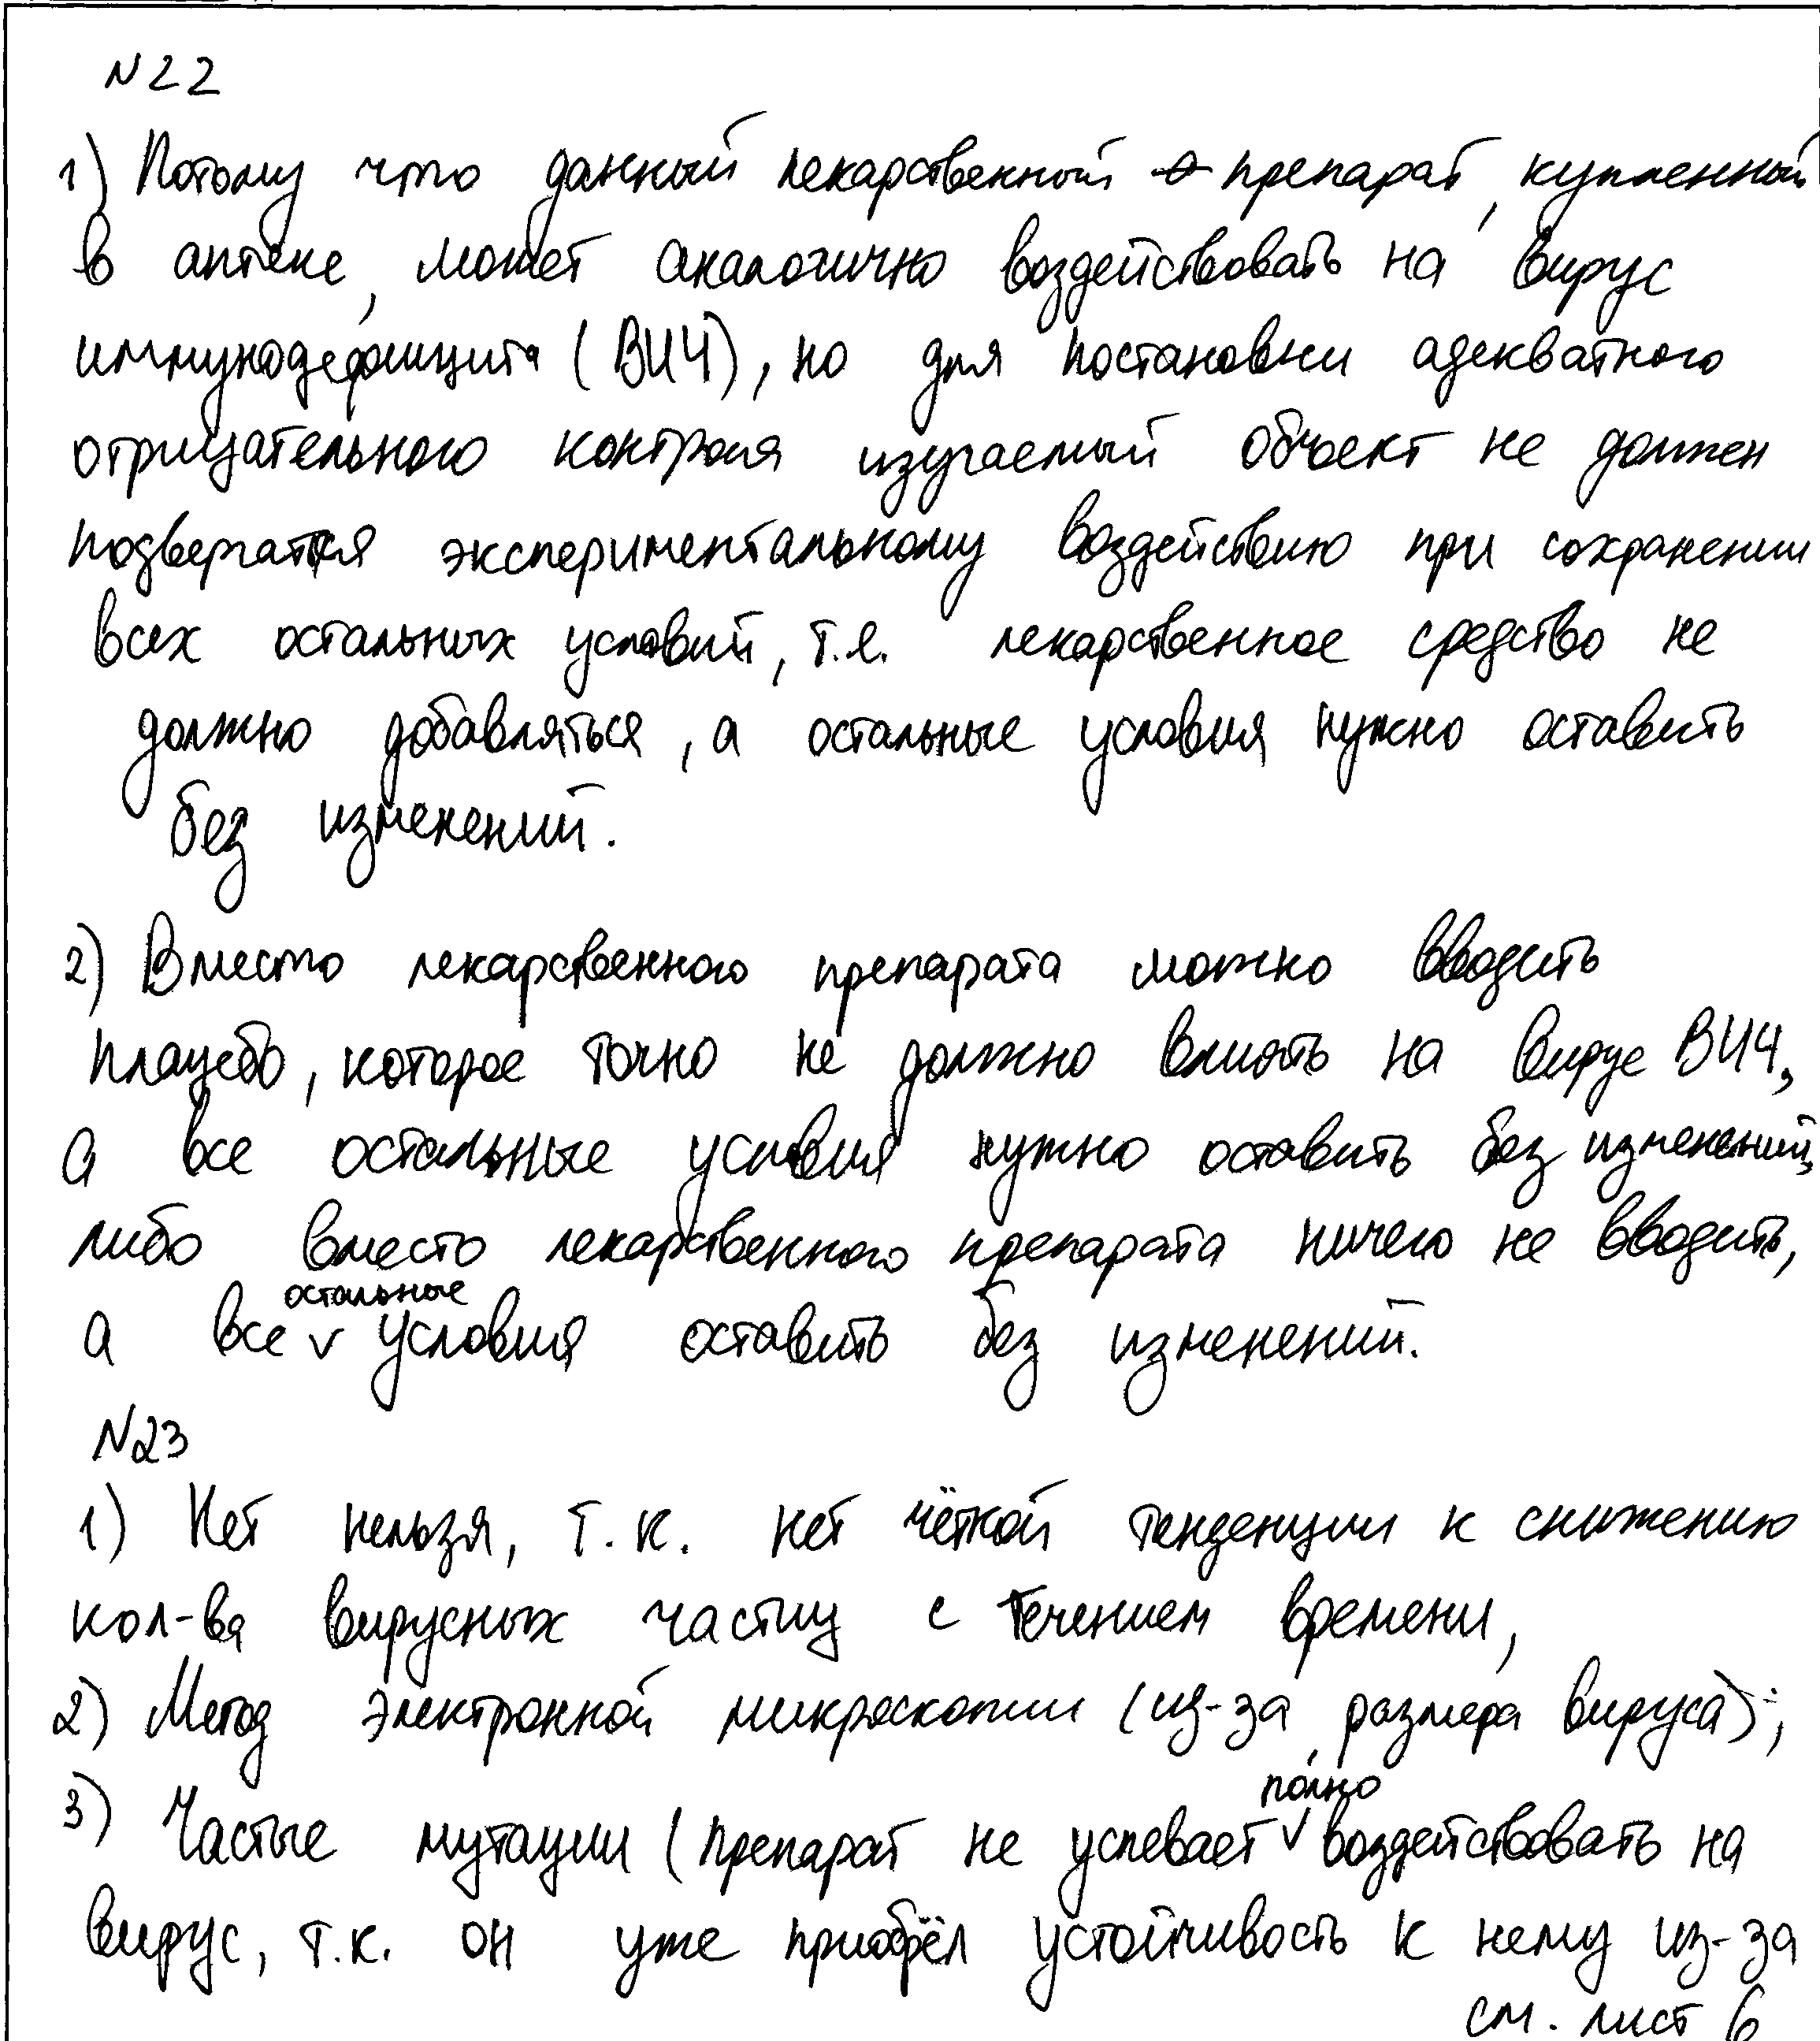 N22
1) Потому что данный лекарственный препарат, купленный
в аптеке, может аналогично воздействовать на вирус
иммунодефицита (ВИЧ), но для постановки адекватного
отрицательного контроля изучаемый объект не должен
подвергаться экспериментальному воздействию при сохранении
всех остальных условий, т.е. лекарственное средство не
должно добавляться, а остальные условия нужно оставить
без изменений.
2) Вместо лекарственного препарата можно вводить
плацебо, которое точно не должно влиять на вирус ВИЧ,
а все остальные условия нужно оставить без изменений,
либо вместо лекарственного препарата ничего не вводить,
а все остальные условия оставить без изменений.
N23
1) Нет нельзя, т.к. нет чёткой тенденции к снижению
кол-ва вирусных частиц с течением времени,
2) Метод электронной микроскопии (из-за размера вируса);
3) Частые мутации (препарат не успевает полно воздействовать на
вирус, т.к. он уже приобрёл устойчивость к нему из-за
см. лист 6